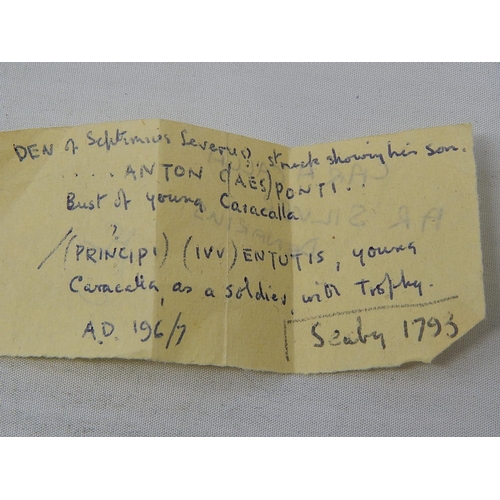 DEN of Septimius Severus, struck showing his son.
.... ANTON (CAES) PONTI..
Bust of young Caracalla
?
/(PRINCIPI) (IVV) ENTUTIS, young
Caracalla, as a soldier, with trophy.
A.D. 196/7
Seaby 1793